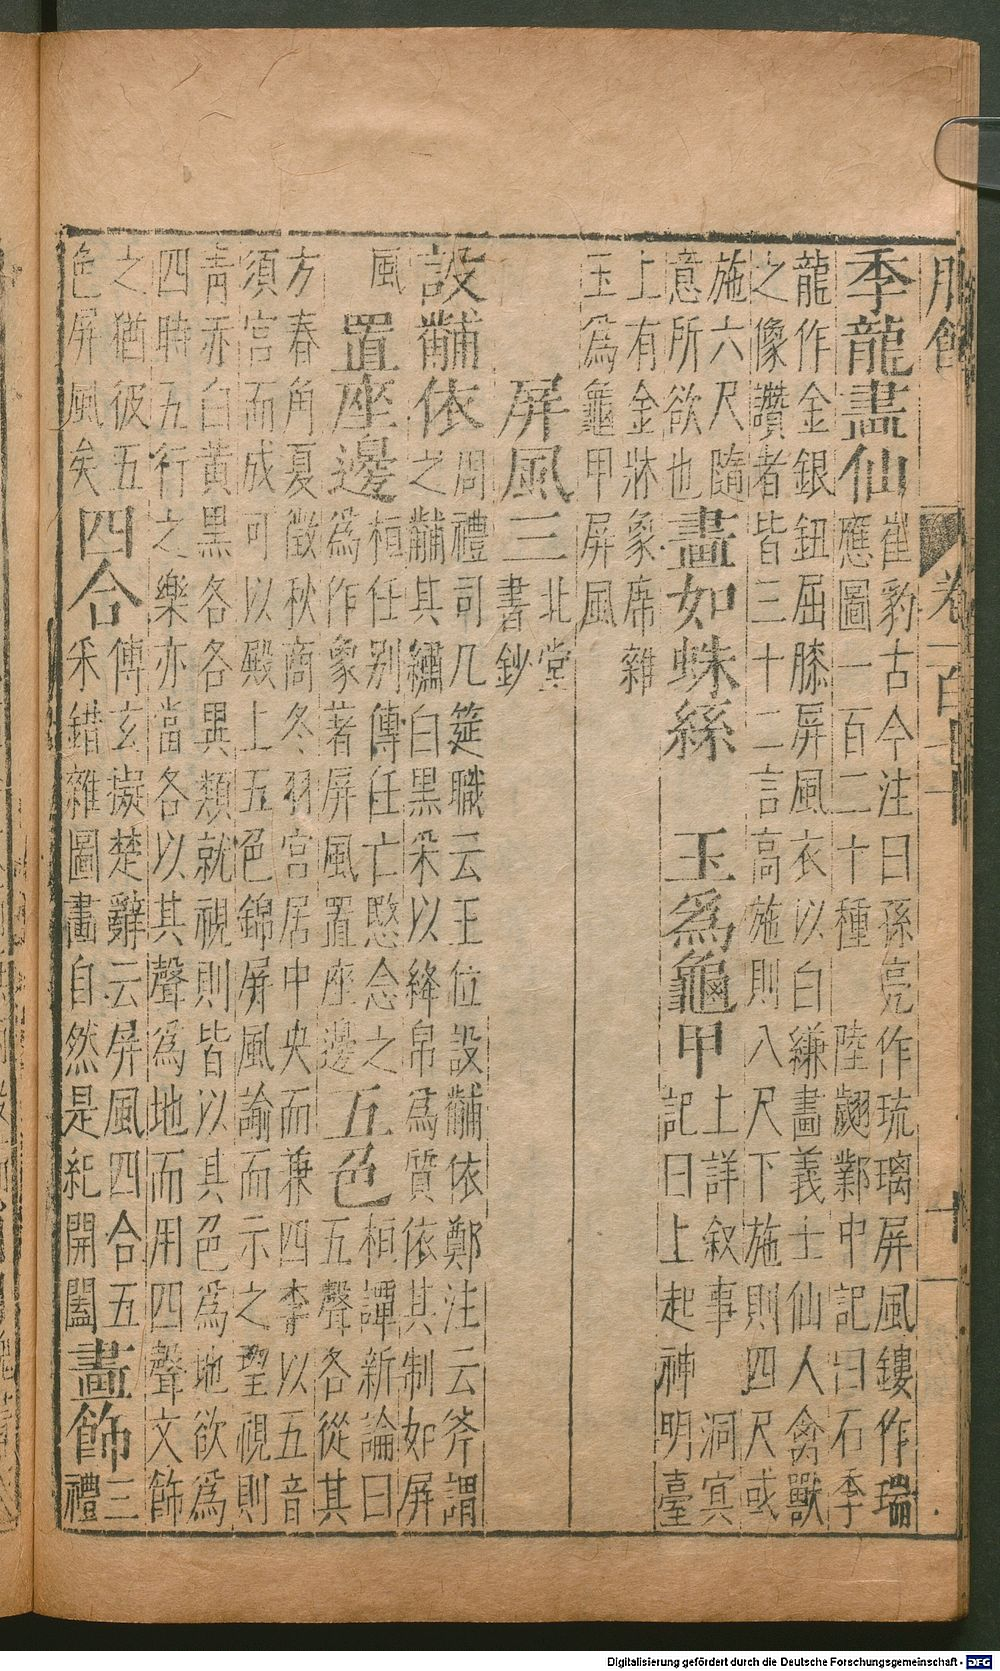 卷一百
季龍畫仙
崔豹古今注曰孫亮作琉璃屏風鏤作瑞
應圖一百二十種 陸翽鄴中記曰石季
龍作金銀鈕屈膝屏風衣以白縑畫義士仙人禽獸
之像讚者皆三十二言高施則八尺下施則四尺或
施六尺隨
意所欲也
畫如蛛絲 玉為龜甲
上詳叙事 洞㝠
記曰上起神明臺
上有金牀象席雜
玉為龜甲屏風
屏風三
北堂
書鈔
設黼依
周禮司几筵職云王位設黼依鄭注云斧謂
之黼其繡白黑朵以絳帛為質依其制如屏
風
置座邊
桓任别傳任亡愍念之
為作象著屏風置座邊
五色
桓譚新論曰
五聲各從其
方春角夏徵秋商冬羽宮居中央而兼四季以五音
須宮而成可以殿上五色錦屏風諭而示之朢視則
青赤白黃黑各各異類就視則皆以其色為地欲為
四時五行之樂亦當各以其聲為地而用四聲文飾
之猶彼五
色屏風矣
四合
傅玄擬楚辭云屏風四合五
釆錯雜圖畫自然是紀開闔
畫飾
三
禮
Digitalisierung gefördert durch die Deutsche Forschungsgemeinschaft - DFG